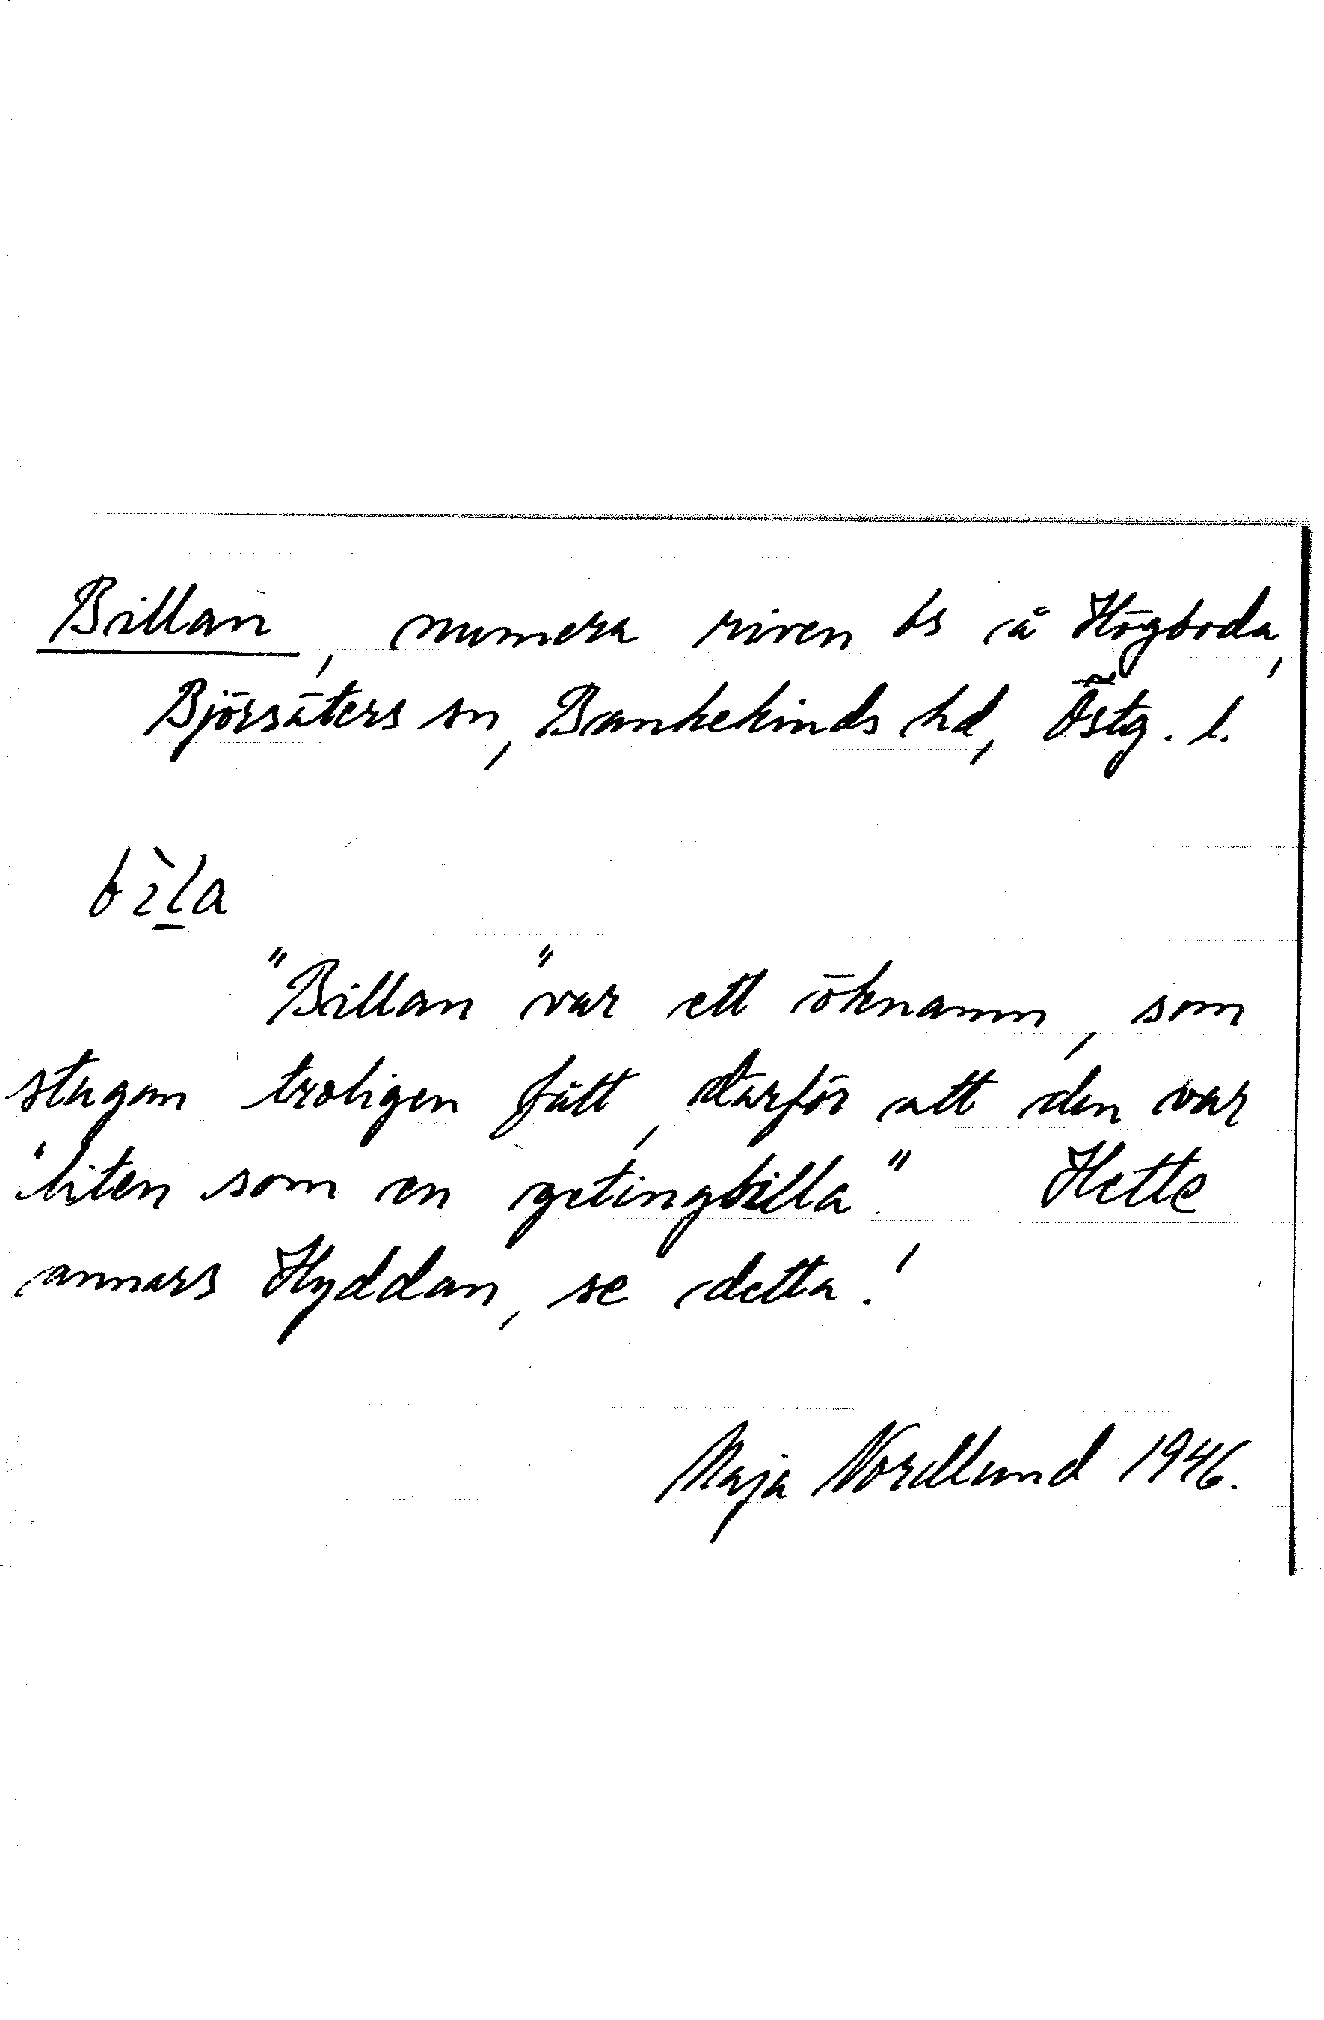 Billan, numera riven bs å Högboda,
Björsäters sn, Bankekinds hd, Östg. l.
bìl̲a
"Billan" var ett öknamn, som
stugan troligen fått, därför att den var
"liten som en getingbilla." Hette
annars Hyddan, se detta!
Maja Nordlund 1946.